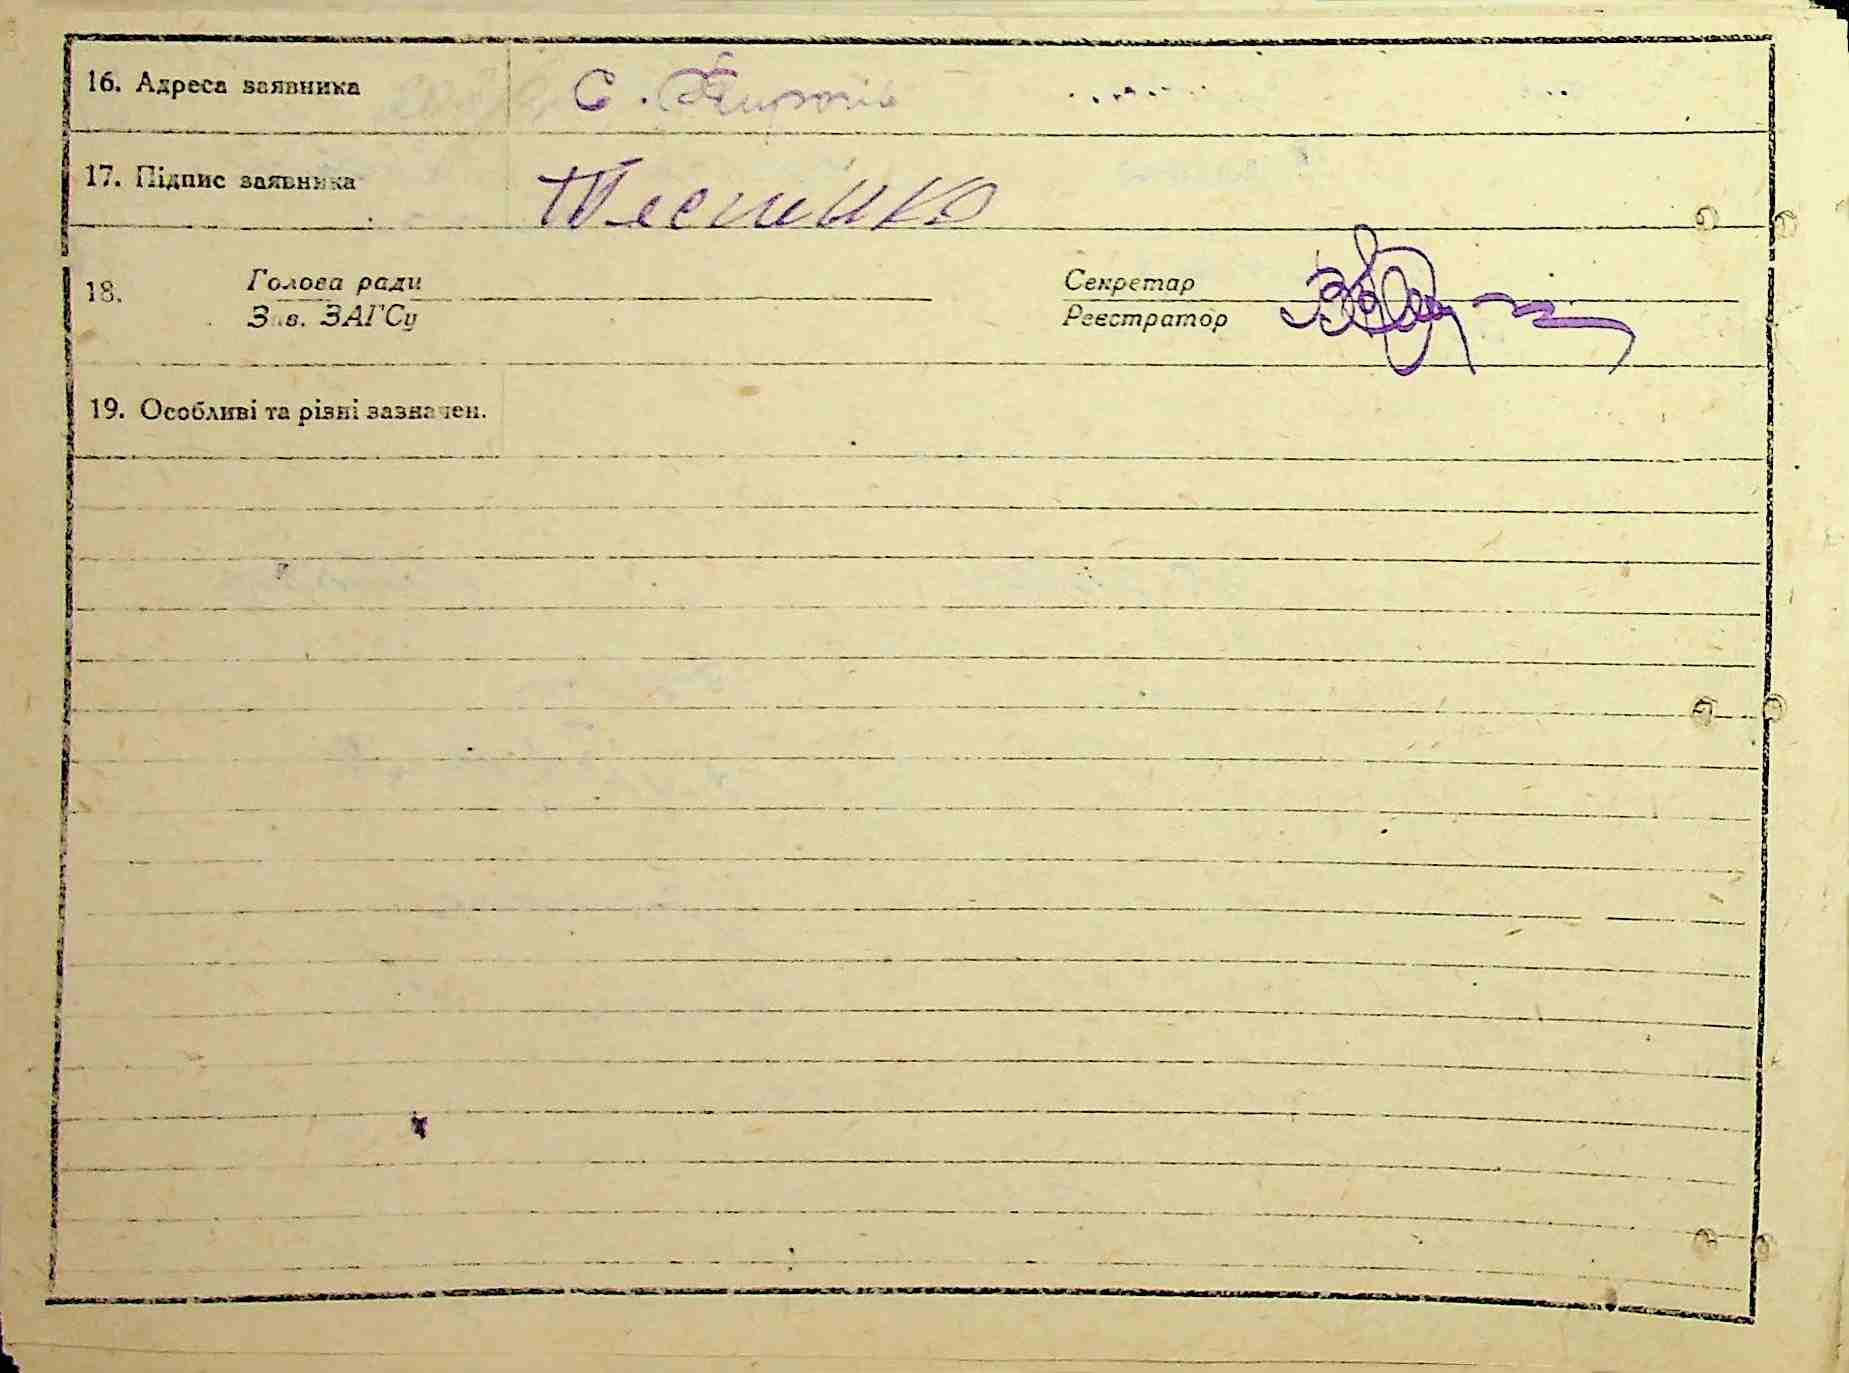 16. Адреса заявника С.
17. Підпис заявника
18. Голова ради Секретар
Зав. ЗАГСу Реєстратор
19. Особливі та різні зазначен.